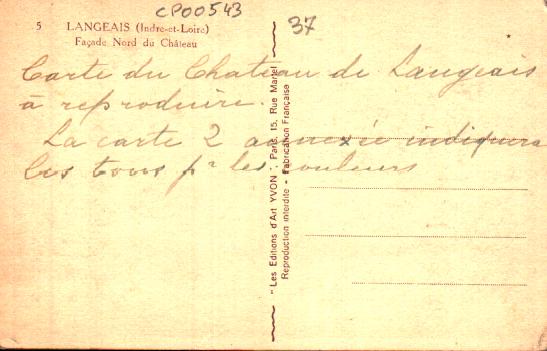 CP00543
37
5 LANGEAIS (Indre-et-Loire)
Façade Nord du Château
Carte du Chateau de Langeais
à reproduire.
La carte 2 annexée indiquera
les tons pr les couleurs
" Les Editions d'Art YVON ", Paris, 15, Rue Martel
Reproduction interdite - Fabrication Française